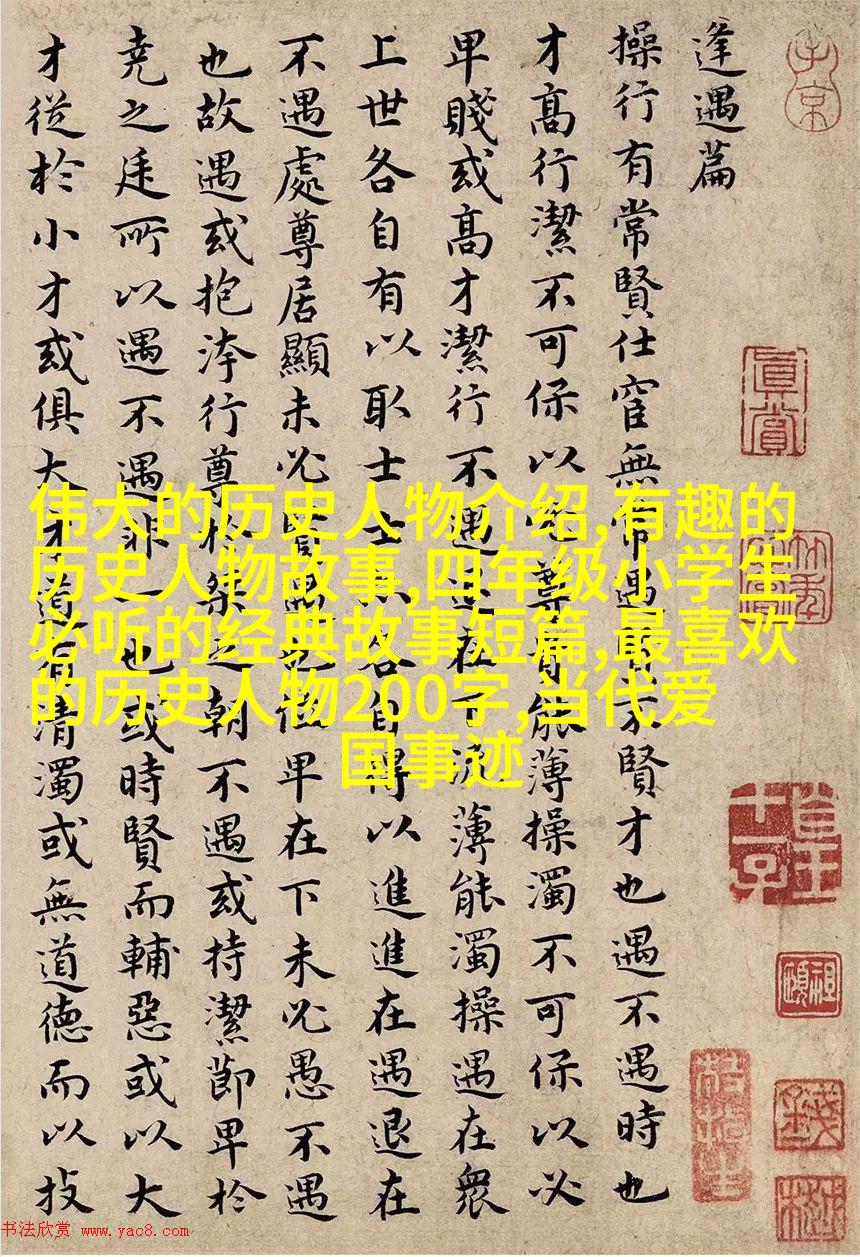 逢遇篇
操行有常賢仕宦無常遇賢不賢才也遇不遇時也
才高行潔不可保以必尊貴能薄操濁不可保以必
卑賤或高才潔行不遇退在下流薄能濁操遇在衆
上世各自有以取士士亦各自得以進進在遇退在
不遇處尊居顯未必賢遇也位卑在下未必愚不遇
也故遇或抱洿行尊於桀之朝不遇或持潔節卑於
堯之廷所以遇不遇非一也或時賢而輔惡或以大
才從於小才或俱大才道有清濁或無道德而以技
伟大的历史人物介绍,有趣的
历史人物故事,四年级小学生
必听的经典故事短篇,最喜欢
的历史人物200字,当代爱
国事迹
真賞
书法欣赏 www.yac8.com